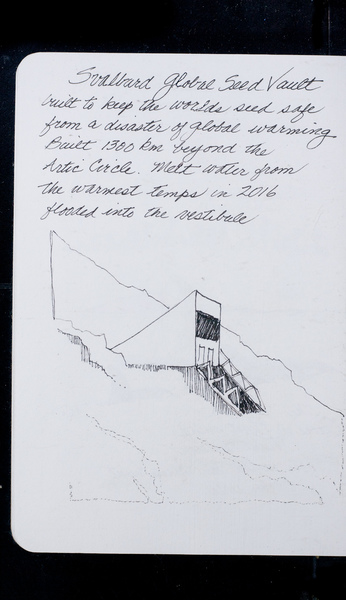 Svalbard Global Seed Vault
built to keep the worlds seed safe
from a disaster of global warming
Built 1300 km beyond the
Artic Circle. Melt water from
the warmest temps in 2016
flooded into the vestibule